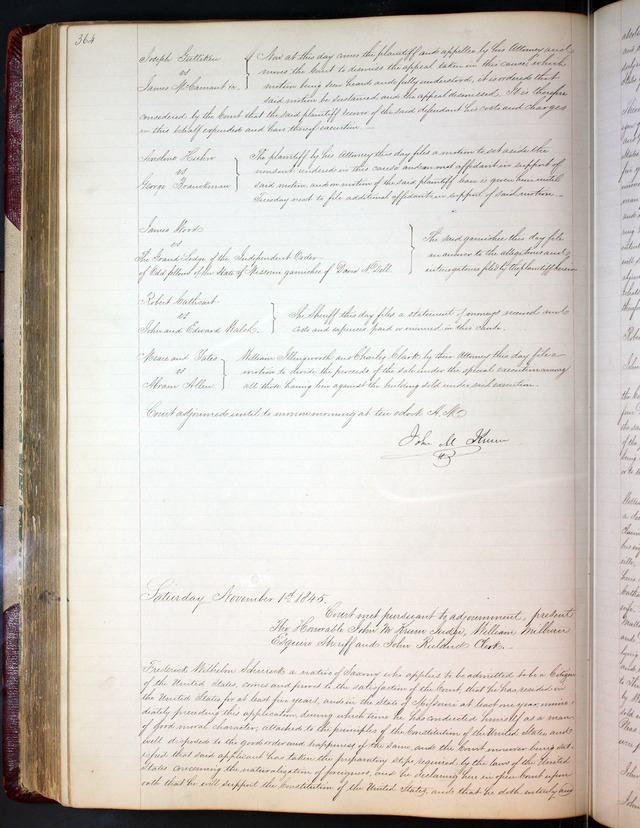 364
Joseph Gottisken Now at this day comes the plaintiff and appellee by his Attorney and
vs moves the Court to dismiss the appeal taken in this cause, which
James McCamant ex. motion being seen heard and fully understood, it is ordered that
said motion be sustained and the appeal dismissed. It is therefore
considered by the Court that the said plaintiff recover of the said defendant his costs and charges
in this behalf expended and have thereof execution.
The plaintiff by his Attorney this day files a motion to set aside the
vs nonsuit rendered in this cause and an affidavit in support of
George said motion, and on motion of the said plaintiff leave is given him until
Tuesday next to file additional affidavits in support of said motion.
James Wood
vs The said garnishee this day files
The Grand Lodge of the Independent Order an answer to the allegations and
of Odd fellows of the State of Missouri garnishee of David N. Doll interrogatories filed by the plaintiff herein
Robert Cathcart
vs The Sheriff this day files a statement of moneys received and
John and Edward Walsh. costs and expenses paid or incurred in this cause.
Meare and Yates William Illingworth and Charles Clark by their Attorney this day files a
vs motion to divide the proceeds of the sale under the special execution among
Abram Allen all those having lien against the building sold under such execution.
Court adjourned until tomorrow morning at ten oclock A.M.
John M Krum
Saturday November 1st 1845.
Court met pursuant to adjournment, present
The Honorable John M Krum Judge, William Milburn
Esquire Sheriff and John Ruland Clerk.
Frederick Wilhelm a native of Saxony who applies to be admitted to be a Citizen
of the United States, comes and proves to the satisfaction of the Court, that he has resided in
the United States for at least five years, and in the State of Missouri at least one year, imme-
diately preceding this application, during which time he has conducted himself as a man
of good moral character, attached to the principles of the Constitution of the United States, and
well disposed to the good order and happiness of the same, and the Court moreover being sat-
isfied that said applicant has taken the preparatory steps required by the laws of the United
States concerning the naturalization of foreigners, and he declaring here in open Court upon
oath that he will support the Constitution of the United States, and that he doth entirely